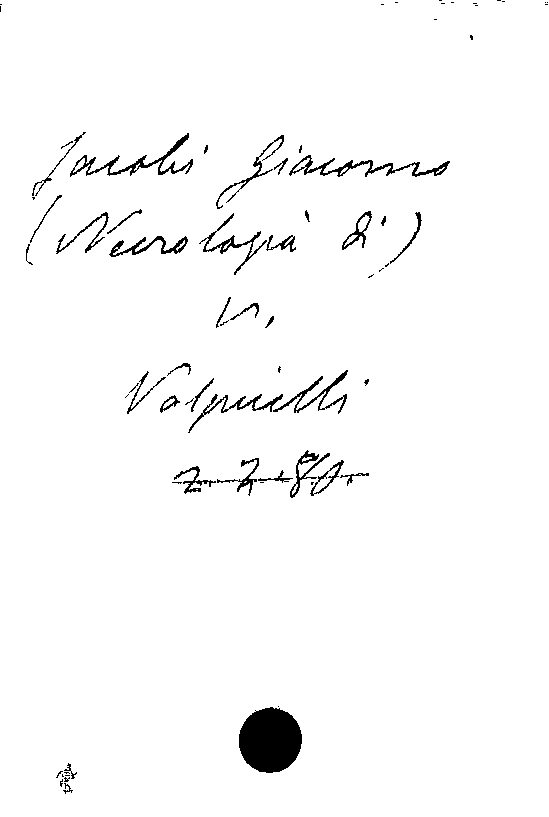 Jacobi Giacomo
(Necrologià di)
V.
Volpicelli
2. 2. 80.